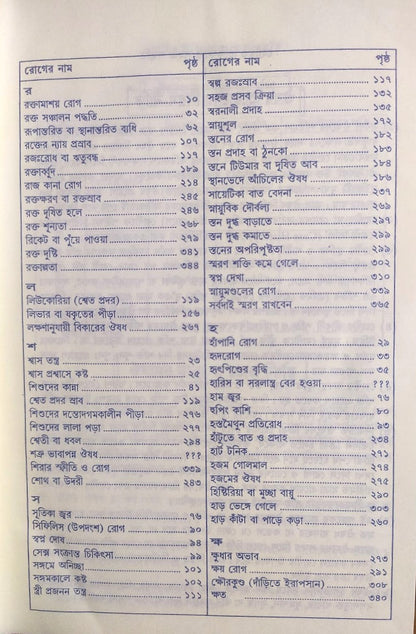 রোগের নাম পৃষ্ঠ
র
রক্তামাশয় রোগ ১০
রক্ত সঞ্চালন পদ্ধতি ৩২
রূপান্তরিত বা স্থানান্তরিত ব্যধি ৬২
রক্তের ন্যায় প্রস্রাব ১০৭
রজঃরোধ বা ঋতুবন্ধ ১১৭
রক্তার্ব্বুদ ১৮৯
রাজ কানা রোগ ২১৪
রক্তক্ষরণ বা রক্তস্রাব ২৪৫
রক্ত দূষিত হলে ২৪৬
রক্ত শূন্যতা ২৬৮
রিকেট বা পুঁয়ে পাওয়া ২৭৯
রক্ত দুষ্টি ৩৪১
রক্তাল্পতা ৩৪৪
ল
লিউকোরিয়া (শ্বেত প্রদর) ১১৯
লিভার বা যকৃতের পীড়া ১৫৬
লক্ষণানুযায়ী বিকারের ঔষধ ২৬৭
শ
শ্বাস তন্ত্র ২৩
শ্বাস প্রশ্বাসে কষ্ট ২৫
শিশুদের কান্না ৪১
শ্বেত প্রদর স্রাব ১১৯
শিশুদের দন্তোদগমকালীন পীড়া ২৭৬
শিশুদের লালা পড়া ২৭৭
শ্বেতী বা ধবল ২৯৪
শত্রু ভাবাপন্ন ঔষধ ???
শিরার স্ফীতি ও রোগ ৩৩৯
শোথ বা উদরী ২৪৩
স
সূতিকা জ্বর ৭৬
সিফিলিস (উপদংশ) রোগ ৯০
স্বপ্ন দোষ ৯৪
সেক্স সংক্রান্ত চিকিৎসা ৯৯
সঙ্গমে অনিচ্ছা ১০১
সঙ্গমকালে কষ্ট ১০২
স্ত্রী প্রজনন তন্ত্র ১১১
রোগের নাম পৃষ্ঠ
স্বল্প রজঃস্রাব ১১৭
সহজ প্রসব ক্রিয়া ১৩২
স্বরনালী প্রদাহ ১৩৫
স্নায়ুশূল ১৭২
স্তনের রোগ ১৮২
স্তন প্রদাহ বা ঠুনকো ১৮৩
স্তনে টিউমার বা দূষিত আব ১৮৪
স্থানভেদে আঁচিলের ঔষধ ১৮৬
সায়েটিকা বাত বেদনা ২৩৭
স্নায়ুবিক দৌর্বল্য ২৬৯
স্তন দুগ্ধ বাড়াতে ২৯৭
স্তন দুগ্ধ কমাতে ২৯৯
স্তনের অপরিপুষ্টতা ২৯৯
স্মরণ শক্তি কমে গেলে ৩০২
স্বপ্ন দেখা ৩১০
স্নায়ুমণ্ডলের রোগ ৩৩৯
সর্বদাই স্মরণ রাখবেন ৩৬৫
হ
হাঁপানি রোগ ২৯
হৃদরোগ ৩৩
হৃৎপিণ্ডের বৃদ্ধি ৩৫
হারিস বা সরলান্ত্র বের হওয়া ???
হাম জ্বর ৭৬
হুপিং কাশি ৮০
হস্তমৈথুন প্রতিরোধ ৯৩
হাঁটুতে বাত ও প্রদাহ ২৩৪
হার্ট টনিক ২৭১
হজম গোলমাল ২৭৪
হজমের ঔষধ ২৭৫
হিষ্টিরিয়া বা মূচ্ছা বায়ু ২৯০
হাড় ভেঙ্গে গেলে ৩০৩
হাড় কাঁটা বা পাড়ে কড়া ২৬০
ক্ষ
ক্ষুধার অভাব ২৭৩
ক্ষয় রোগ ২৯১
ক্ষৌরকুণ্ড (দাঁড়িতে ইরাপসান) ৩০৮
ক্ষত ৩৪০